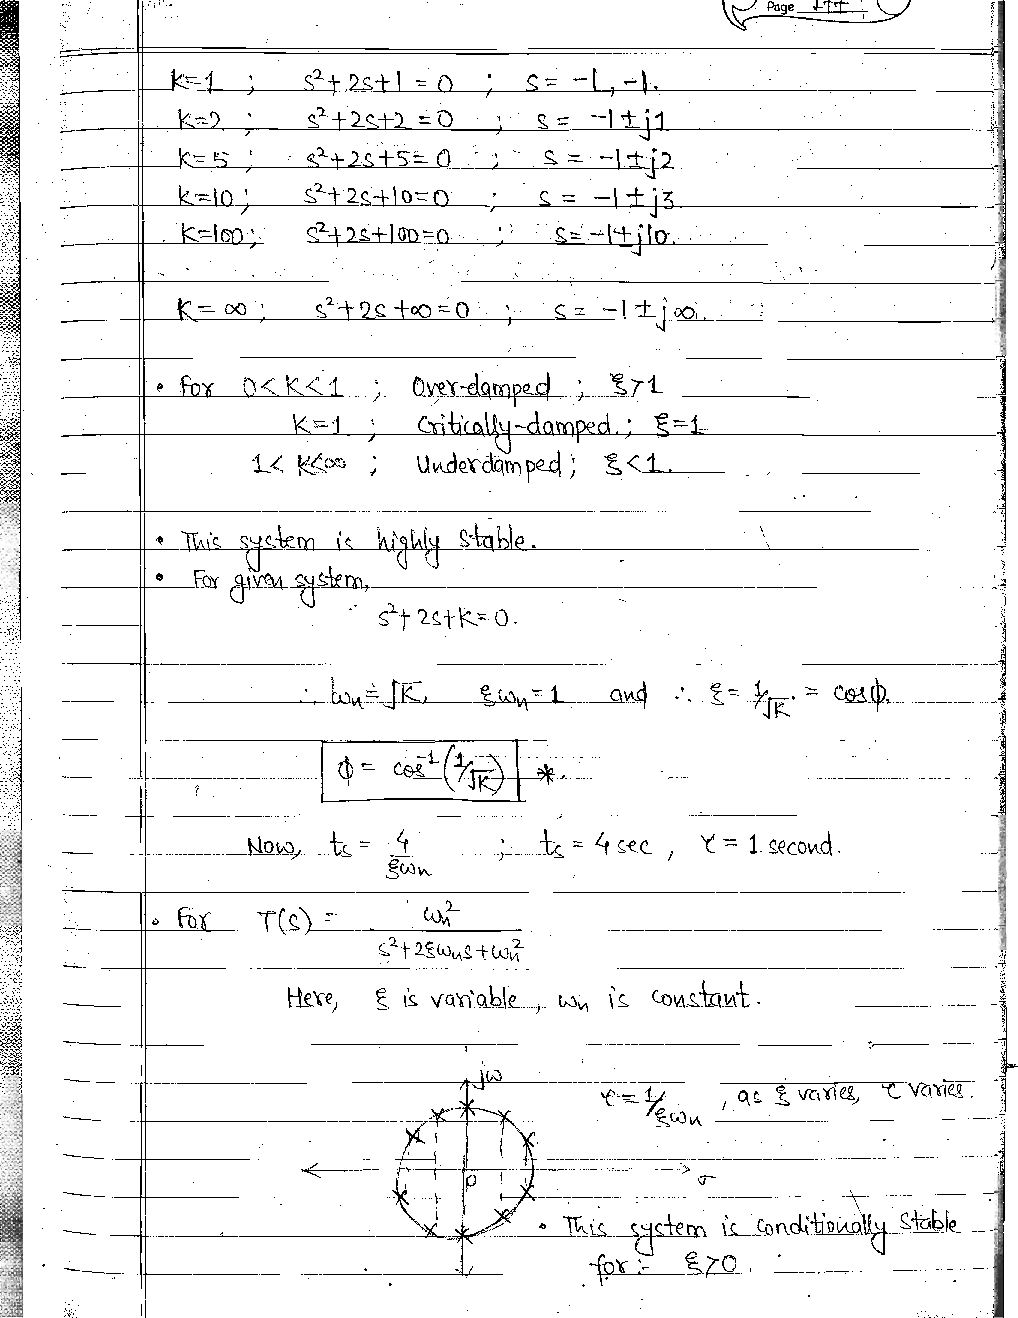 Page
K=1 ; s²+2s+1=0 ; s= -1, -1.
K=2 ; s²+2s+2=0 ; s= -1±j1
K=5 ; s²+2s+5=0 ; s= -1±j2
K=10 ; s²+2s+10=0 ; s= -1±j3
K=100 ; s²+2s+100=0 ; s= -1±j10.
K=∞ ; s²+2s+∞=0 ; s= -1±j∞.
• For 0<K<1 ; Over-damped ; ξ>1
K=1 ; Critically-damped. ; ξ=1
1<K<∞ ; Underdamped ; ξ<1.
• This system is highly stable.
• For given system,
s²+2s+K=0.
∴ ωn=√K, ξωn=1 and ∴ ξ=1/√K = cosφ.
φ = cos⁻¹(1/√K) *.
Now, ts = 4/ξωn ; ts = 4 sec, τ = 1 second.
• For T(s) = ωn²
s²+2ξωns+ωn²
Here, ξ is variable, ωn is constant.
jω
τ=1/ξωn , as ξ varies, τ varies.
0
σ
• This system is conditionally stable
for:- ξ>0.